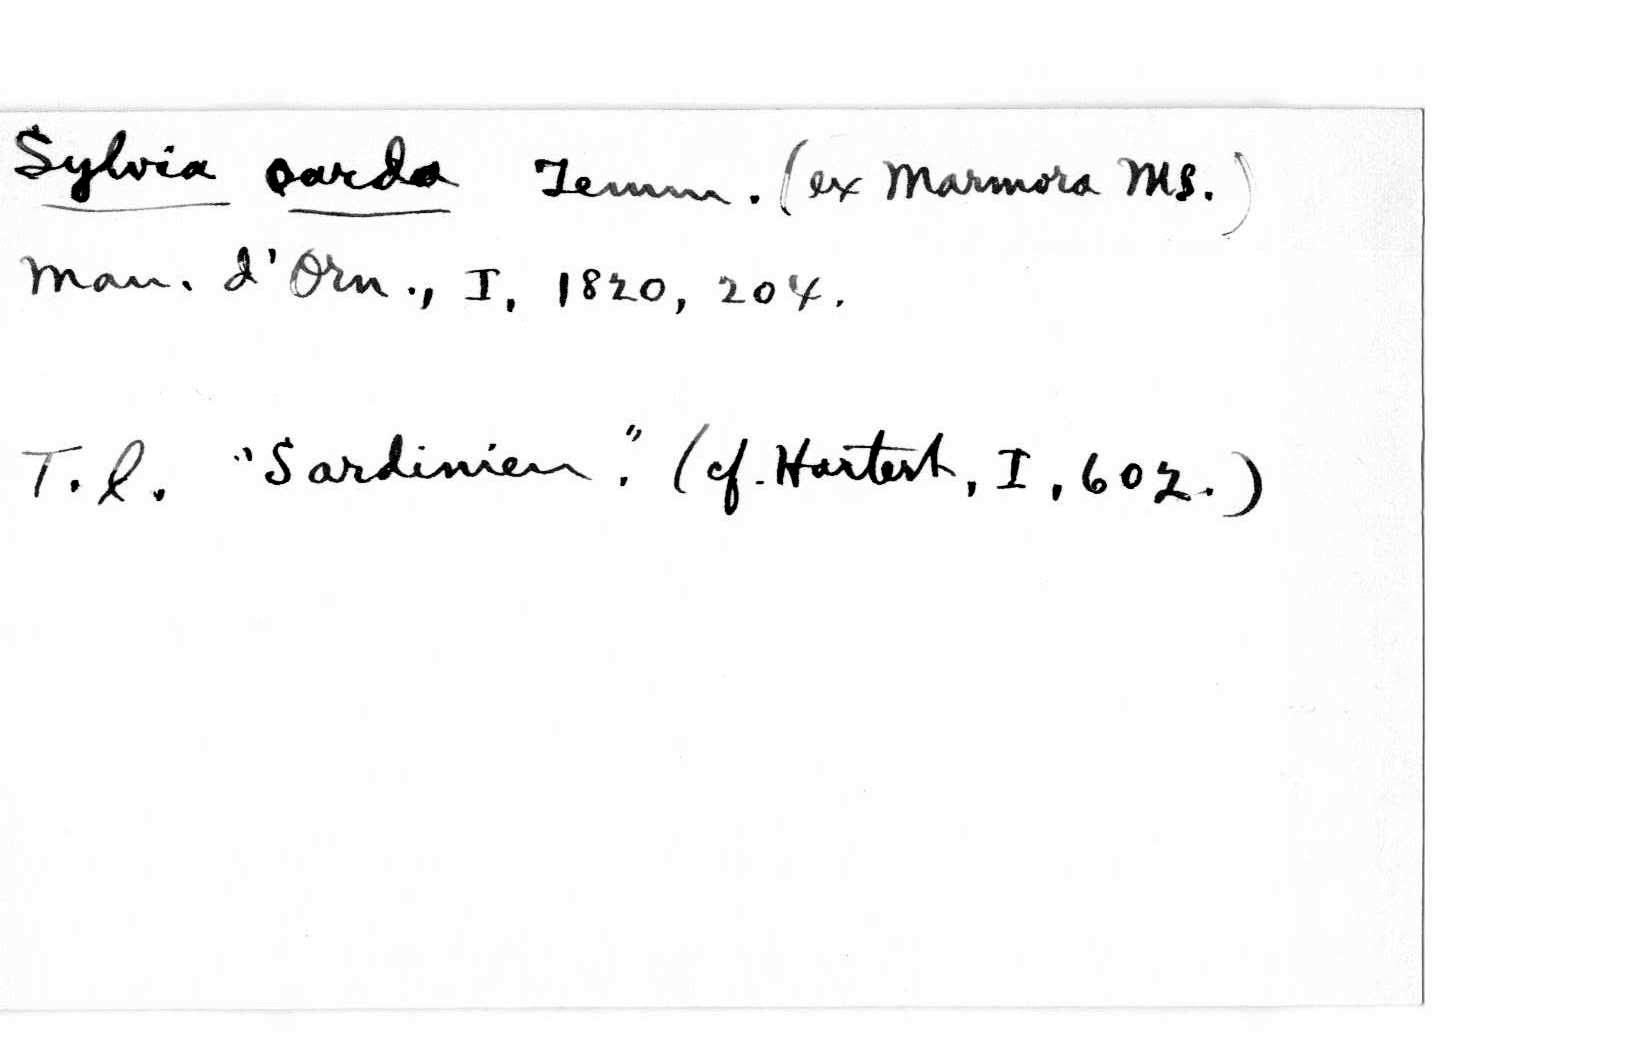 Sylvia sarda Temm. (ex Marmora MS.)
Man. d'Orn., I, 1820, 204.
T.l. "Sardinien." (cf. Hartert, I, 602.)